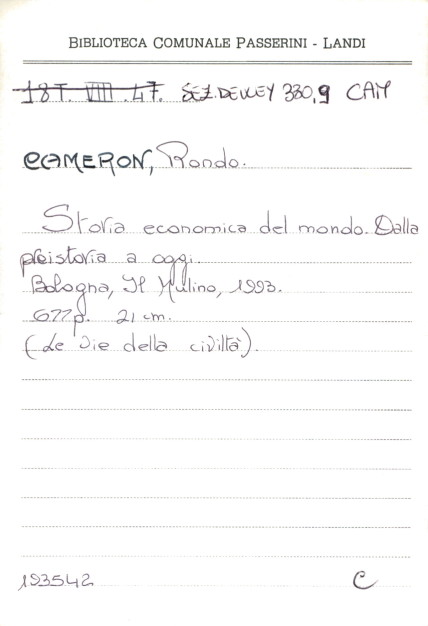 BIBLIOTECA COMUNALE PASSERINI - LANDI
18T. VIII .47. SEZ.DEWEY 330,9 CAM
CAMERON, Rondo.
Storia economica del mondo. Dalla
preistoria a oggi.
Bologna, Il Mulino, 1993.
677p. 21 cm.
(Le vie della civiltà).
193542 C